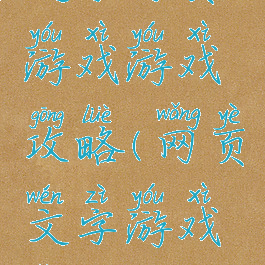 yóu xì yóu xì
游戏游戏
gōng lüè wǎng yè
攻略(网页
wén zì yóu xì
文字游戏